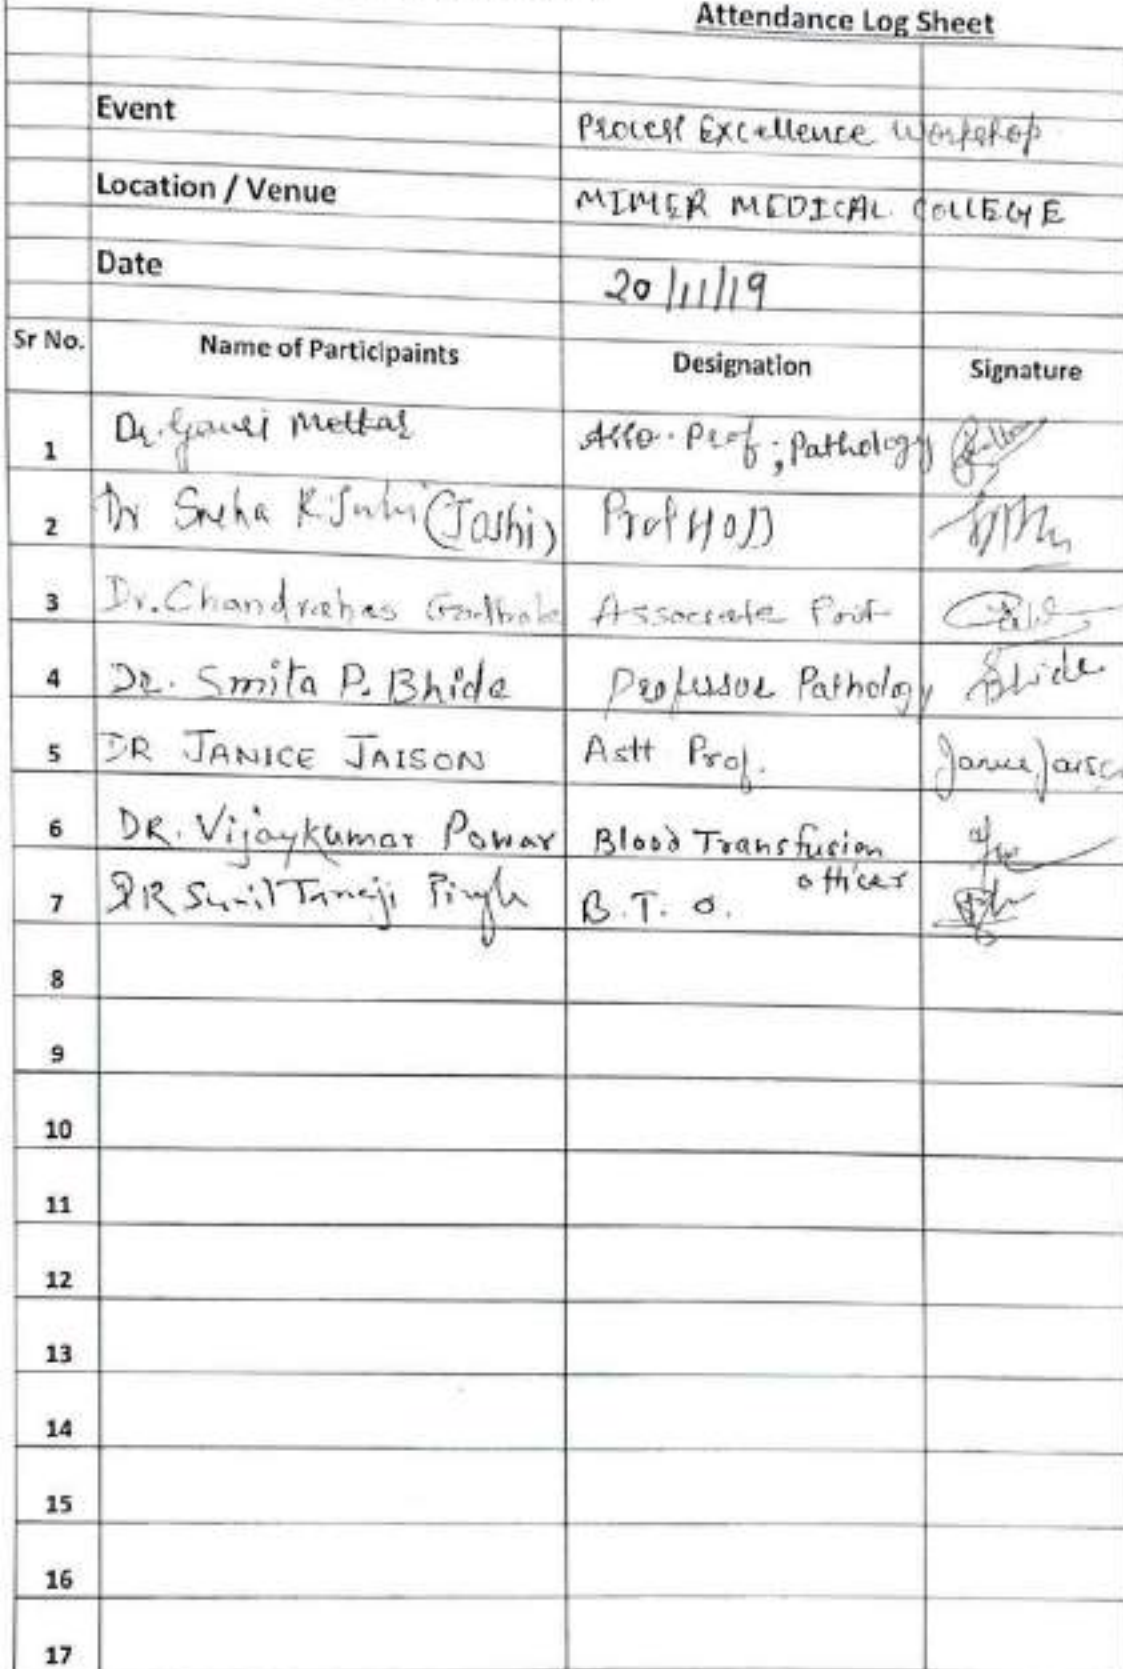 Attendance Log Sheet
Event Process Excellence Workshop
Location / Venue MIMER MEDICAL COLLEGE
Date 20/11/19
Sr No. Name of Participaints Designation Signature
1 Dr. Gauri Metkar Asso. Prof; Pathology
2 Dr Sneha R. Joshi (Joshi) Prof HOD
3 Dr. Chandrahas Associate Prof
4 Dr. Smita P. Bhide Professor Pathology Bhide
5 DR JANICE JAISON Astt Prof. Janice Jaison
6 DR. Vijaykumar Pawar Blood Transfusion
officer
7 DR Sunil Tanaji Pingle B.T.O.
8
9
10
11
12
13
14
15
16
17